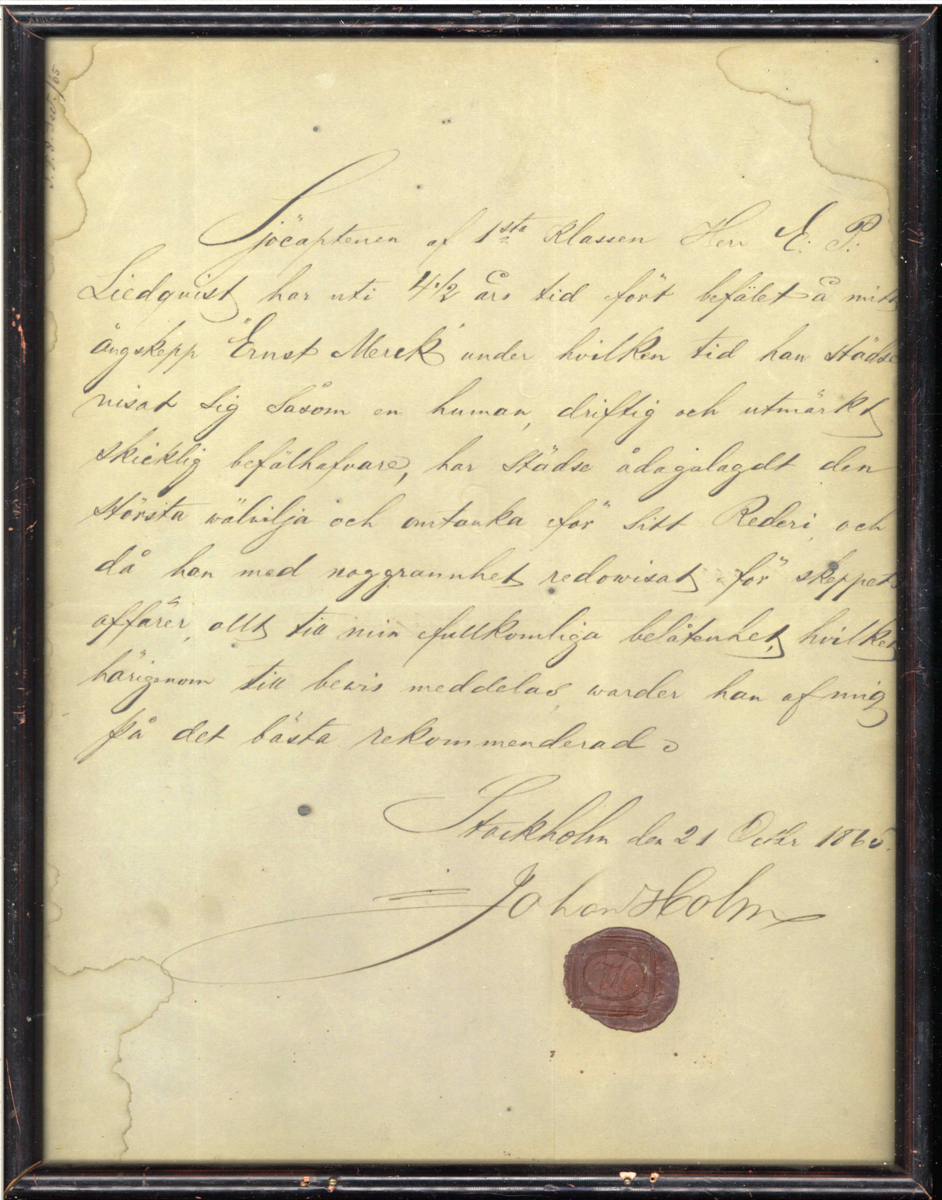 Sjöcaptenen af 1sta Klassen Herr E. P.
Liedqvist har uti 4 1/2 års tid fört befälet å mitt
ångskepp "Ernst Merck" under hvilken tid han städse
visat sig såsom en human, driftig och utmärkt
skicklig befälhafvare, har städse ådagalagdt den
största wälvilja och omtanka för sitt Rederi, och
då han med noggrannhet redowisat för skeppets
affärer, allt till min fullkomliga belåtenhet, hvilket
härigenom till bewis meddelas, warder han af mig
på det bästa rekommenderad.
Stockholm den 21 Octbr 1865.
Johan Holm